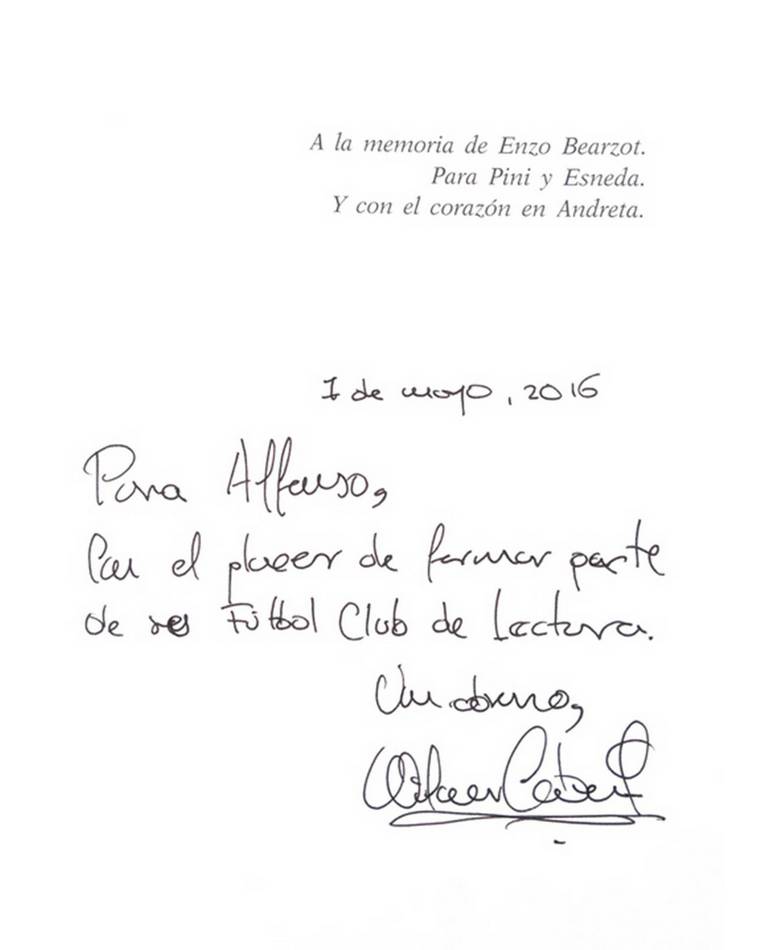 A la memoria de Enzo Bearzot.
Para Pini y Esneda.
Y con el corazón en Andreta.
1 de mayo, 2016
Para Alfonso,
Con el placer de formar parte
de Fútbol Club de Lectura.
Un abrazo,
Wilmar Cabrera